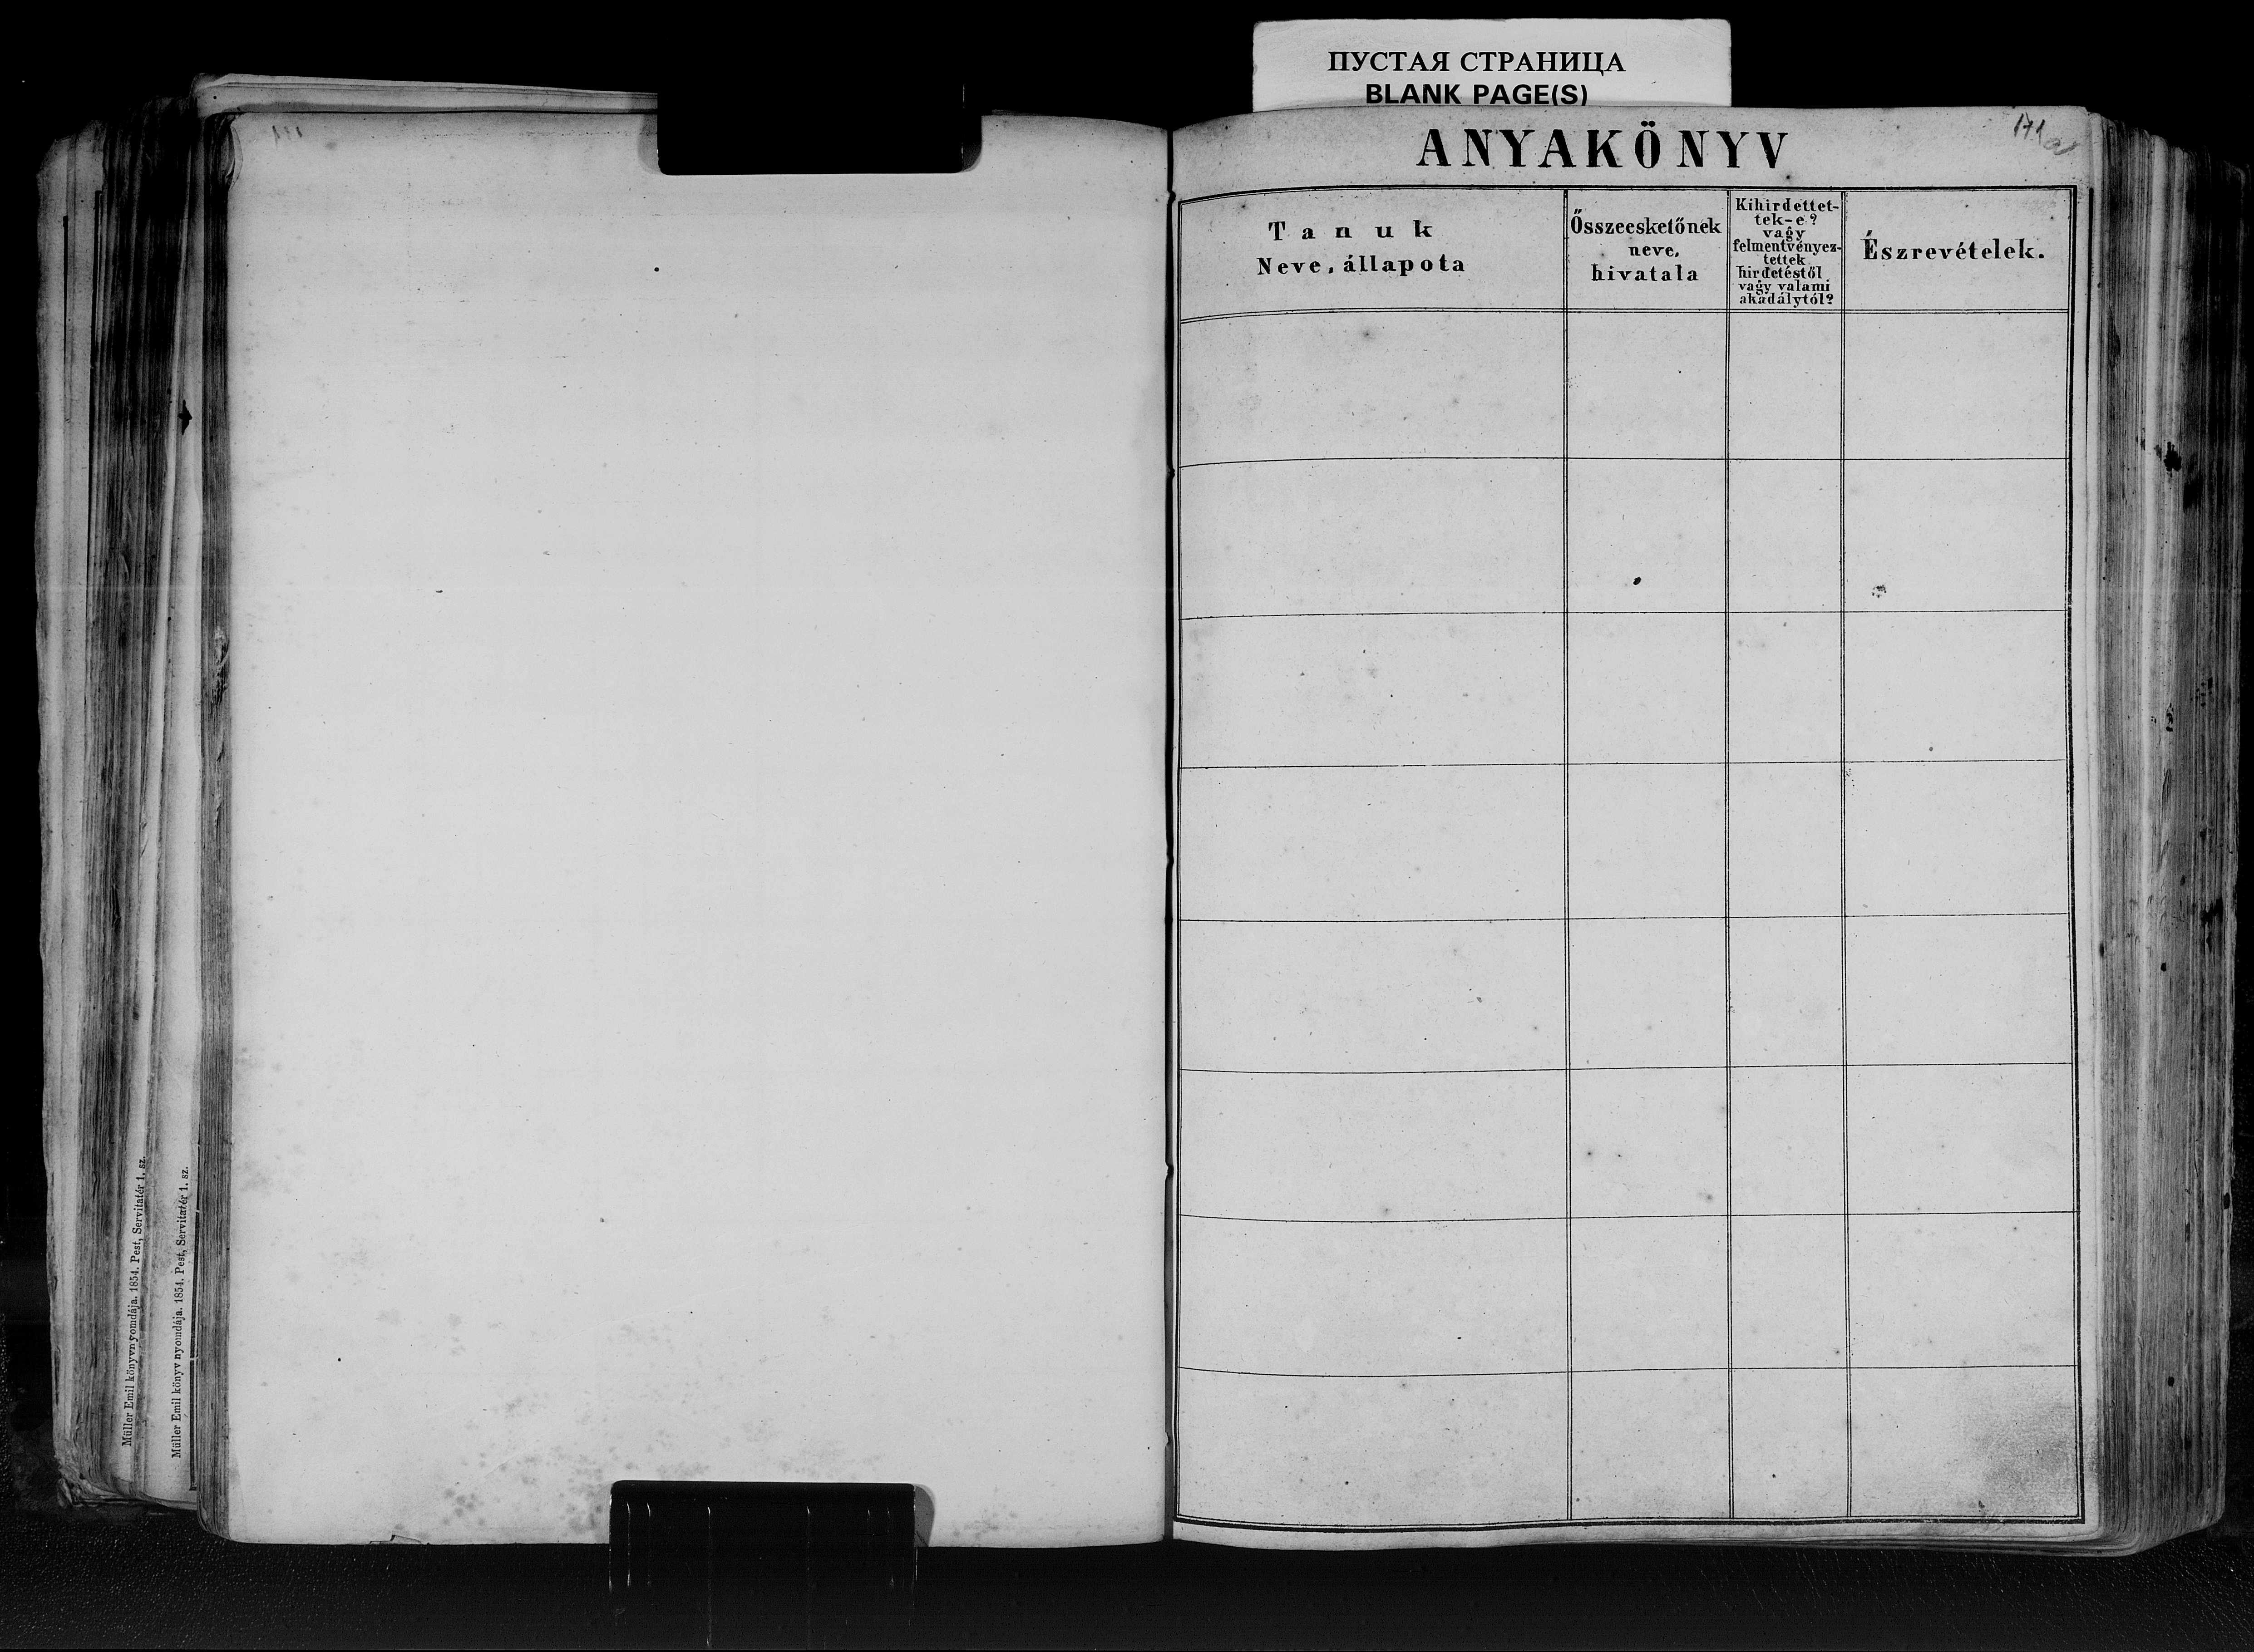 ПУСТАЯ СТРАНИЦА
BLANK PAGE(S)
171a
ANYAKÖNYV
Tanuk
Neve, állapota
Összeesketőnek
neve,
hivatala
Kihirdettet-
tek-e?
vagy
felmentvényez-
tettek
hirdetéstől
vagy valami
akadálytól?
Észrevételek.
Müller Emil könyvnyomdája. 1854. Pest, Servitatér 1. sz.
Müller Emil könyvnyomdája. 1854. Pest, Servitatér 1. sz.